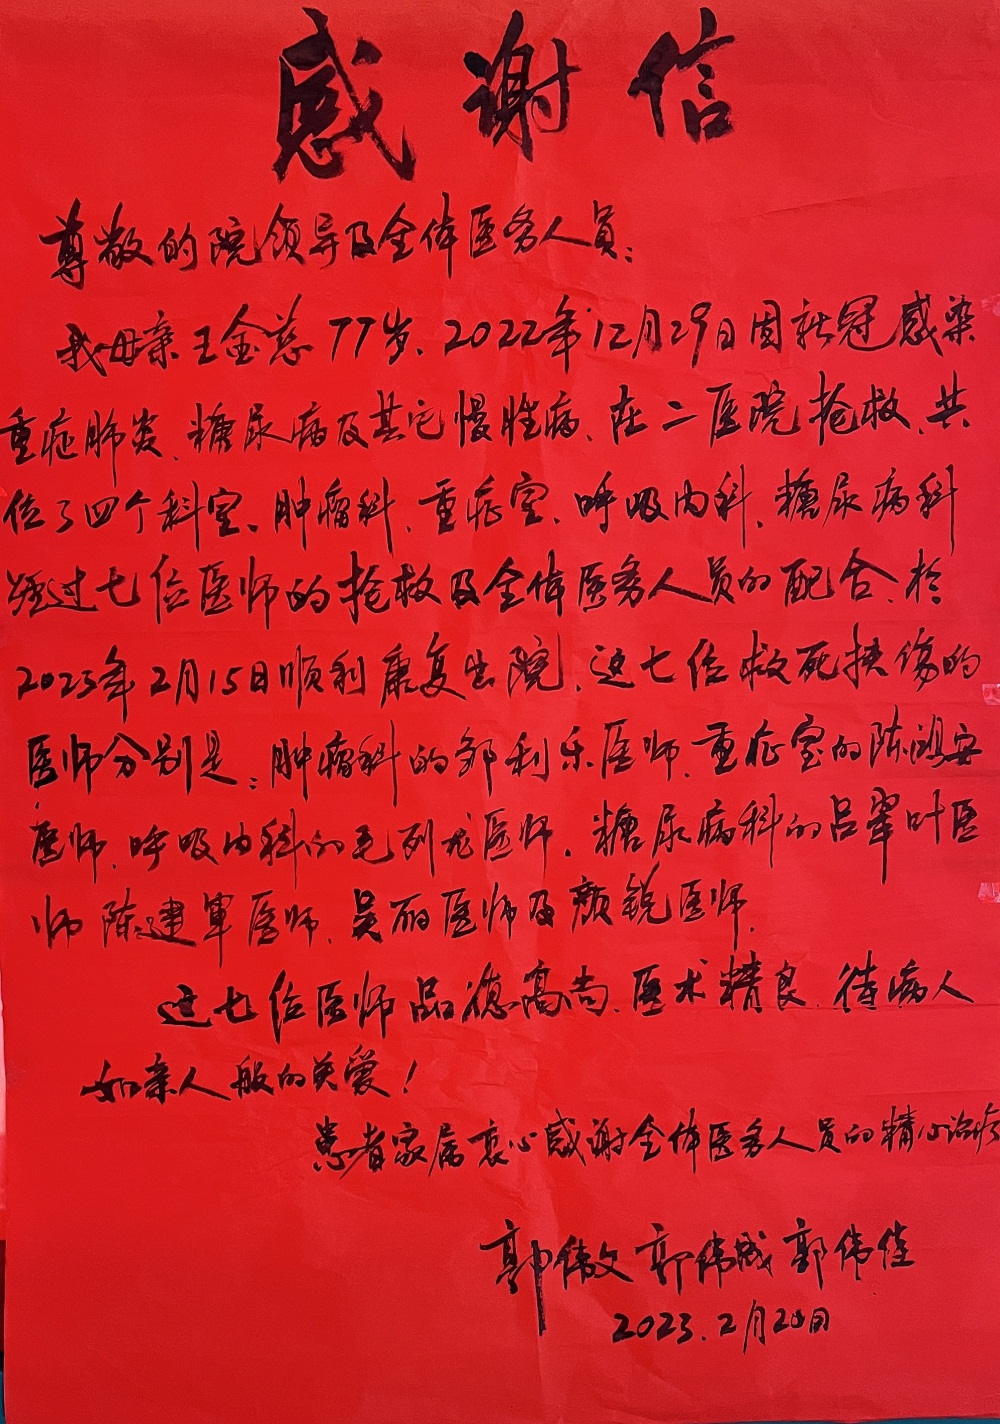 感谢信
尊敬的院领导及全体医务人员:
我母亲王金慈77岁、2022年12月29日因新冠感染
重症肺炎、糖尿病及其它慢性病、在二医院抢救、共
住了四个科室、肿瘤科、重症室、呼吸内科、糖尿病科
经过七位医师的抢救及全体医务人员的配合、于
2023年2月15日顺利康复出院、这七位救死扶伤的
医师分别是:肿瘤科的邹利乐医师、重症室的陈鸿安
医师、呼吸内科的毛列龙医师、糖尿病科的吕翠叶医
师陈建军医师、吴丽医师及颜锐医师.
这七位医师品德高尚、医术精良、待病人
如亲人般的关爱!
患者家属衷心感谢全体医务人员的精心治疗
郭伟文 郭伟成 郭伟佳
2023.2月20日